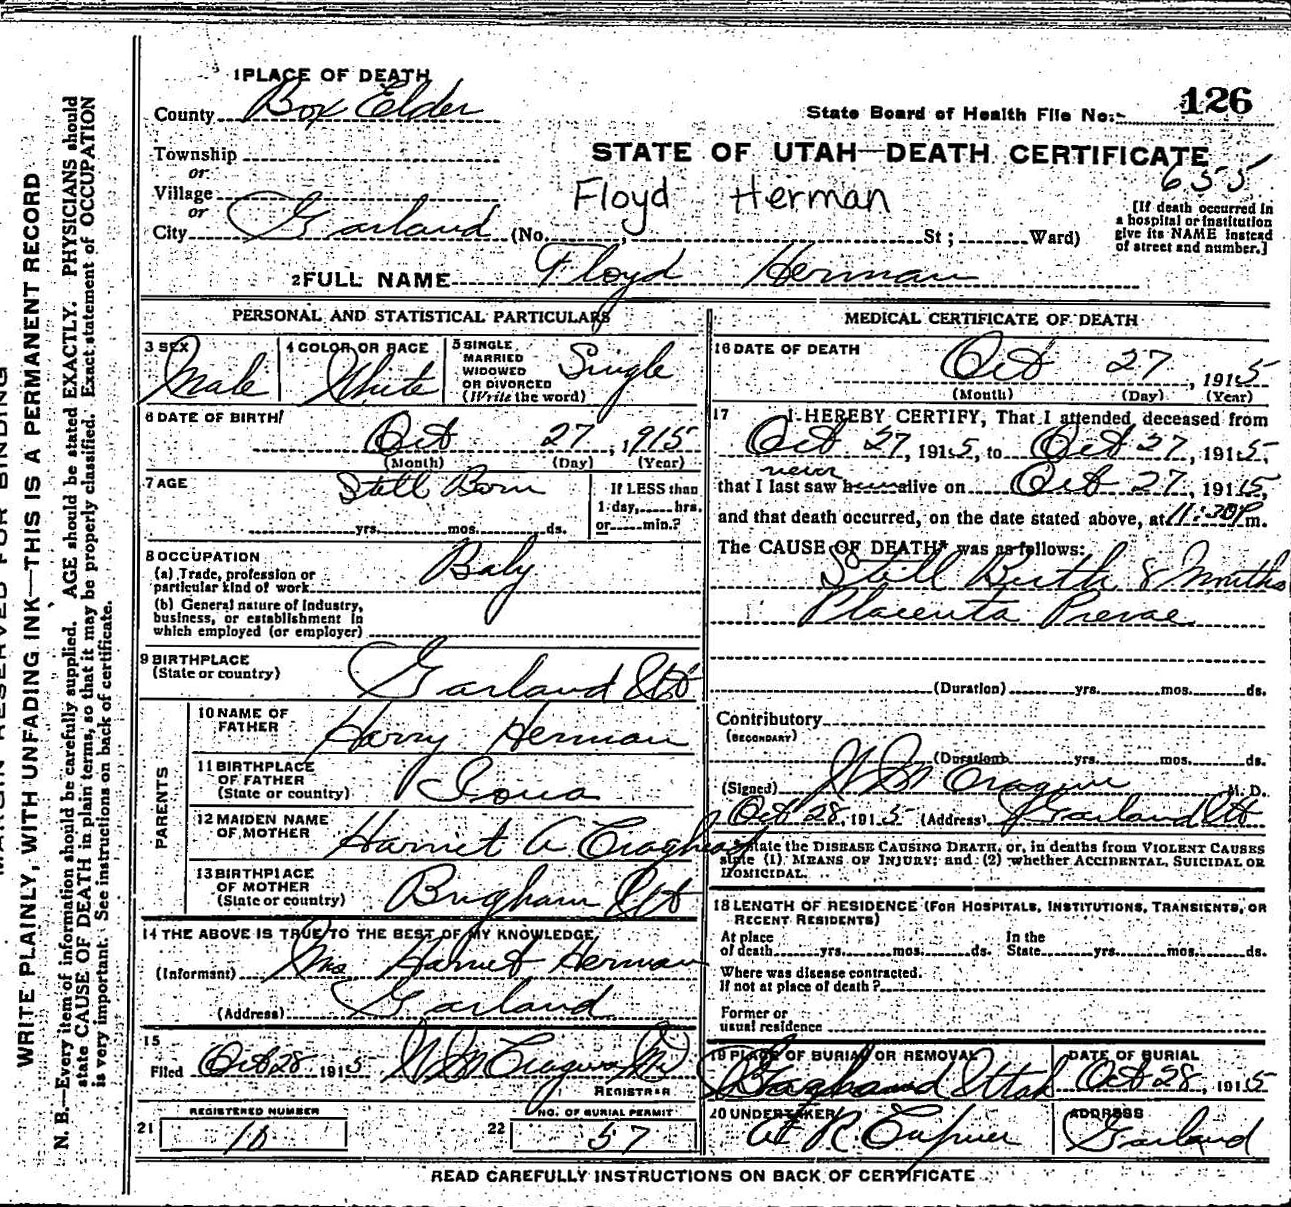 1 PLACE OF DEATH
County Box Elder
State Board of Health File No. 126
Township
or
Village
or
City Garland (No. , St ; Ward)
STATE OF UTAH—DEATH CERTIFICATE
655
Floyd Herman
[If death occurred in
a hospital or institution
give its NAME instead
of street and number.]
2 FULL NAME Floyd Herman
PERSONAL AND STATISTICAL PARTICULARS
3 SEX
Male
4 COLOR OR RACE
White
5 SINGLE,
MARRIED
WIDOWED
OR DIVORCED
(Write the word)
Single
6 DATE OF BIRTH
Oct 27, 1915
(Month) (Day) (Year)
7 AGE
Still Born
yrs. mos. ds.
If LESS than
1 day, hrs.
or min.?
8 OCCUPATION
(a) Trade, profession or
particular kind of work Baby
(b) General nature of Industry,
business, or establishment in
which employed (or employer)
9 BIRTHPLACE
(State or country) Garland Ut
PARENTS
10 NAME OF
FATHER Harry Herman
11 BIRTHPLACE
OF FATHER
(State or country) Iowa
12 MAIDEN NAME
OF MOTHER Harriet A
13 BIRTHPLACE
OF MOTHER
(State or country) Brigham Ut
14 THE ABOVE IS TRUE TO THE BEST OF MY KNOWLEDGE
(Informant) Mrs Harriet Herman
(Address) Garland
15
Filed Oct 28 1915
REGISTRAR
REGISTERED NUMBER
21
NO. OF BURIAL PERMIT
22 57
MEDICAL CERTIFICATE OF DEATH
16 DATE OF DEATH
Oct 27, 1915
(Month) (Day) (Year)
17 I HEREBY CERTIFY, That I attended deceased from
Oct 27, 1915, to Oct 27, 1915,
never
that I last saw alive on Oct 27, 1915,
and that death occurred, on the date stated above, at 11:30P m.
The CAUSE OF DEATH* was as follows:
Still Birth 8 Months
Placenta Prevae
(Duration) yrs. mos. ds.
Contributory
(SECONDARY)
(Duration) yrs. mos. ds.
(Signed) M. D.
Oct 28, 1915 (Address) Garland Ut
*State the DISEASE CAUSING DEATH, or, in deaths from VIOLENT CAUSES
state (1) MEANS OF INJURY; and (2) whether ACCIDENTAL, SUICIDAL OR
HOMICIDAL.
18 LENGTH OF RESIDENCE (FOR HOSPITALS, INSTITUTIONS, TRANSIENTS, OR
RECENT RESIDENTS)
At place
of death yrs. mos. ds.
In the
State yrs. mos. ds.
Where was disease contracted.
If not at place of death?
Former or
usual residence
19 PLACE OF BURIAL OR REMOVAL
Utah
DATE OF BURIAL
Oct 28, 1915
20 UNDERTAKER
ADDRESS
Garland
READ CAREFULLY INSTRUCTIONS ON BACK OF CERTIFICATE
WRITE PLAINLY, WITH UNFADING INK—THIS IS A PERMANENT RECORD
N. B.—Every item of information should be carefully supplied. AGE should be stated EXACTLY. PHYSICIANS should
state CAUSE OF DEATH in plain terms, so that it may be properly classified. Exact statement of OCCUPATION
is very important. See instructions on back of certificate.